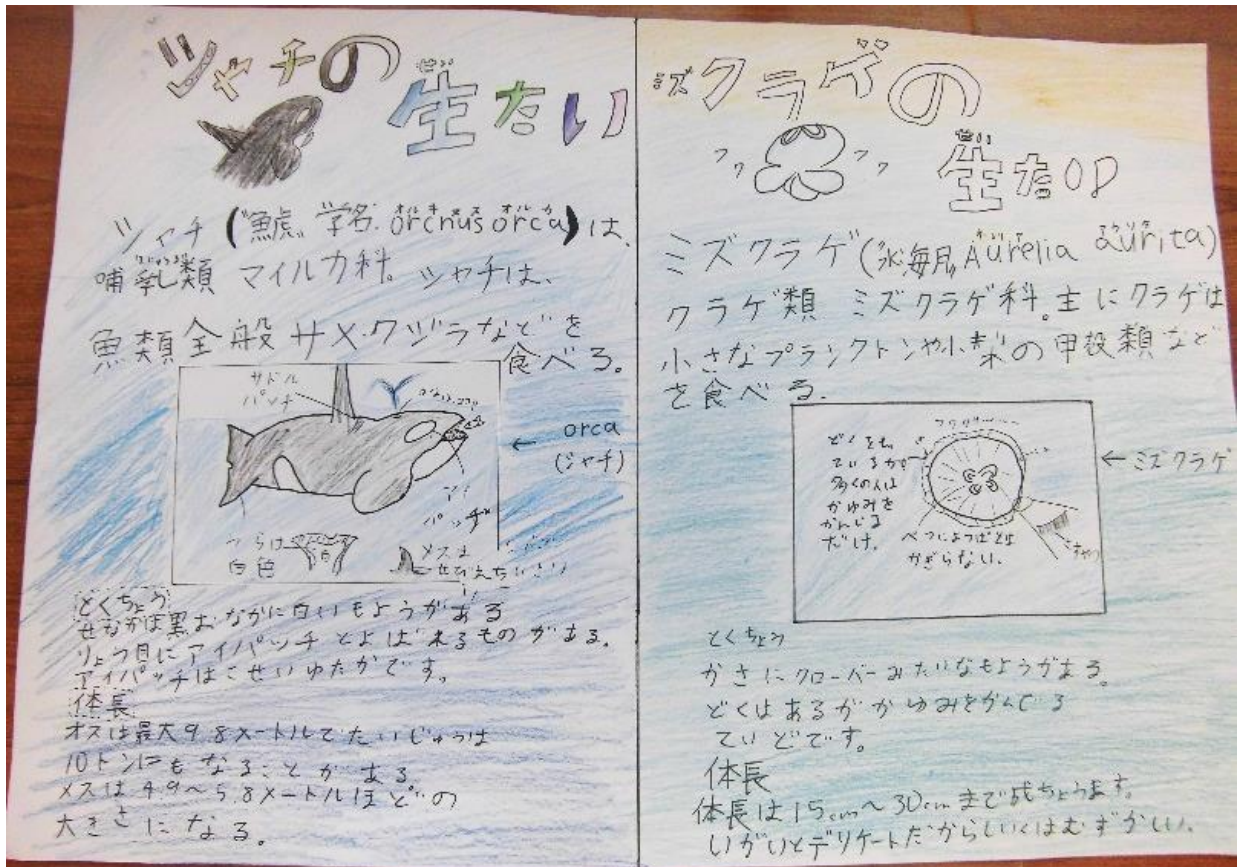 シャチの
生たい
せい
シャチ("鯱"学名:orcnus orca)は、
オルキヌス オルカ
哺乳類 マイルカ科。シャチは、
ほにゅうるい
魚類全般サメ・クジラなどを
食べる。
サドル
パッチ
アイ
パッチ
← orca
(シャチ)
うらは
白色
メスは
せびれちいさい
とくちょう
せなかは黒おなかに白いもようがある
りょう目にアイパッチとよばれるものがある。
アイパッチはこせいゆたかです。
体長
オスは最大9.8メートルでたいじゅうは
10トンにもなることがある。
メスは4.9~5.8メートルほどの
大きさになる。
ミズクラゲの
フワ フワ
せい
生たい
ミズクラゲ("水海月"Aurelia aurita)
クラゲ類 ミズクラゲ科。主にクラゲは
小さなプランクトンや小型の甲殻類など
を食べる。
どくをもっ
ているが。
多くの人は
かゆみを
かんじる
だけ。
べつによつばとは
かぎらない。
← ミズクラゲ
とくちょう
かさにクローバーみたいなもようがある。
どくはあるがかゆみをかんじる
ていどです。
体長
体長は15cm~30cmまで成ちょうます。
いがいとデリケートだからしいくはむずかしい。